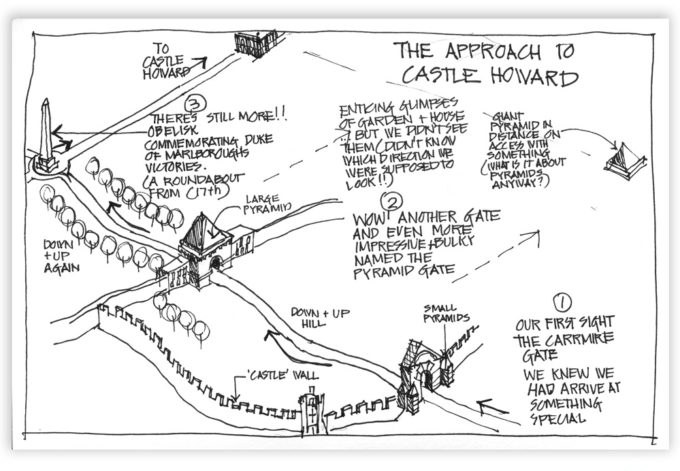 THE APPROACH TO
CASTLE HOWARD
TO
CASTLE
HOWARD
3
THERE'S STILL MORE!!
OBELISK
COMMEMORATING DUKE
OF MARLBOROUGHS
VICTORIES.
(A ROUNDABOUT
FROM (17th)
ENTICING GLIMPSES
OF GARDEN + HOUSE
BUT WE DIDN'T SEE
THEM (DIDN'T KNOW
WHICH DIRECTION WE
WERE SUPPOSED TO
LOOK!!)
GIANT
PYRAMID IN
DISTANCE ON
ACCESS WITH
SOMETHING
(WHAT IS IT ABOUT
PYRAMIDS
ANYWAY?)
LARGE
PYRAMID
2
WOW! ANOTHER GATE
AND EVEN MORE
IMPRESSIVE + BULKY
NAMED THE
PYRAMID GATE
DOWN
+ UP
AGAIN
DOWN + UP
HILL
SMALL
PYRAMIDS
1
OUR FIRST SIGHT
THE CARRMIRE
GATE
WE KNEW WE
HAD ARRIVE AT
SOMETHING
SPECIAL
'CASTLE' WALL